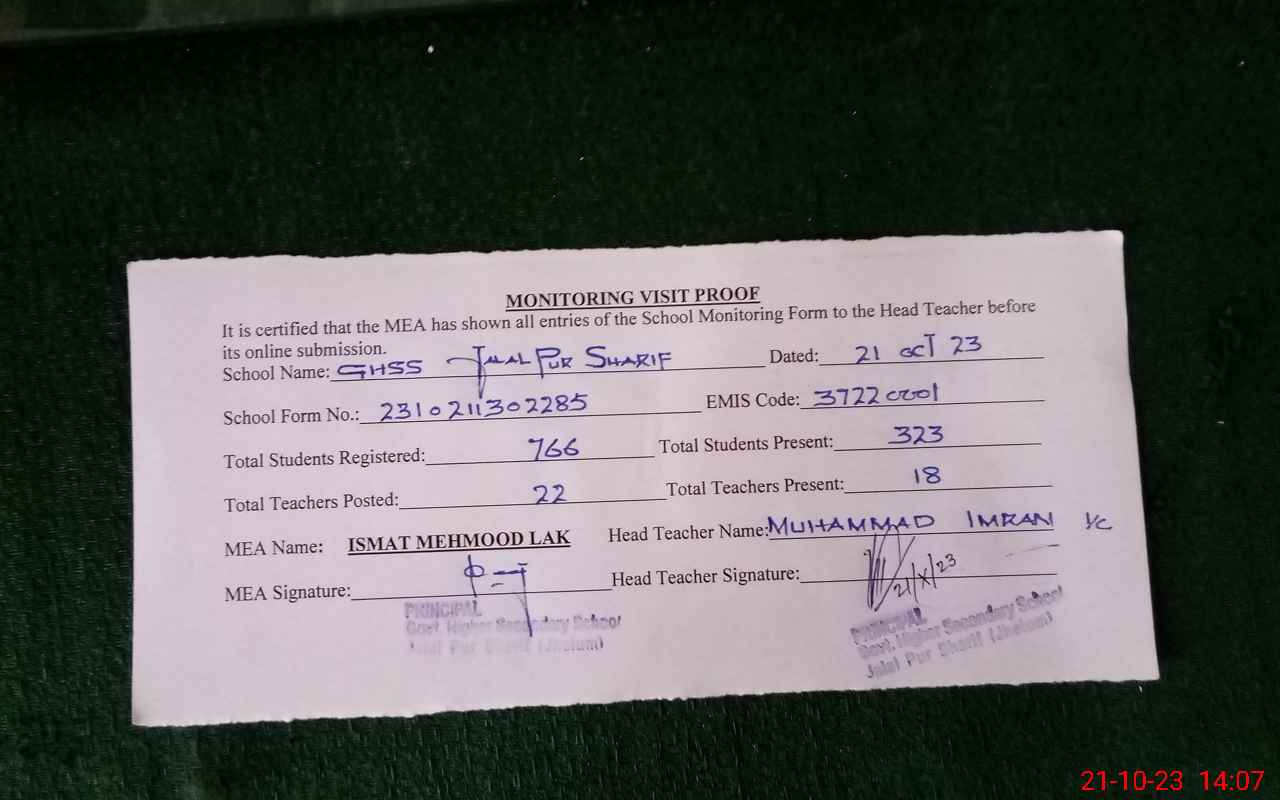 MONITORING VISIT PROOF
It is certified that the MEA has shown all entries of the School Monitoring Form to the Head Teacher before
its online submission.
School Name: GHSS Jalal Pur Sharif Dated: 21 Oct 23
School Form No.: 2310211302285 EMIS Code: 37220001
Total Students Registered: 766 Total Students Present: 323
Total Teachers Posted: 22 Total Teachers Present: 18
MEA Name: ISMAT MEHMOOD LAK Head Teacher Name: MUHAMMAD IMRAN I/C
MEA Signature: Head Teacher Signature: 21/X/23
PRINCIPAL
Govt. Higher Secondary School
Jalal Pur Sharif (Jhelum)
PRINCIPAL
Govt. Higher Secondary School
Jalal Pur Sharif (Jhelum)
21-10-23 14:07